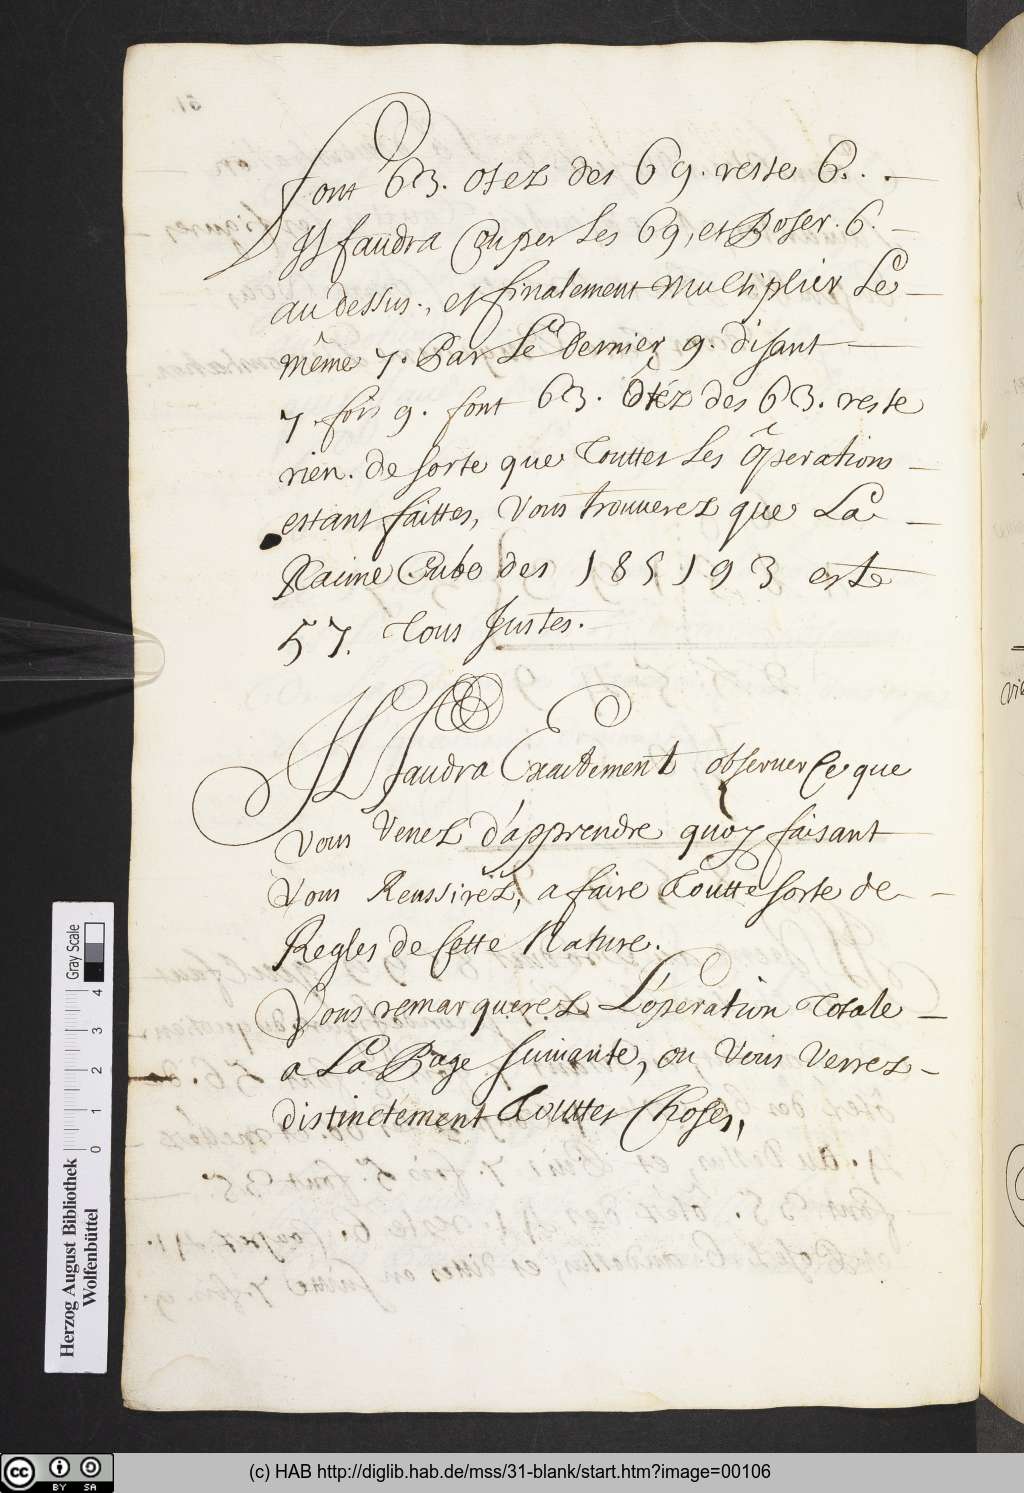 font 63. otez des 69. reste 6. . —
Il faudra Couper les 69, et Poser. 6. —
au dessus., et finalement Multiplier Le —
même 7. Par Le Dernier 9. disant —
7. fois 9. font 63. Ôtéz des 63. reste
rien. de sorte que Touttes Les Operations —
estant faittes, Vous trouuerez que La —
Racine Cubo des 185193 est
57. Tous Justes.
Il faudra Exactement obseruer Ce que
Vous Venez d'apprendre quoy faisant
Vous Reussirez, a faire Toutte sorte de —
Regles de Cette Nature.
Vous remarquerez L'operation Totale —
a La Page suiuante, ou Vous Verrez —
distinctement Touttes Choses,
Herzog August Bibliothek
Wolfenbüttel
0 1 2 3 4
Gray Scale
cc BY SA
(c) HAB http://diglib.hab.de/mss/31-blank/start.htm?image=00106